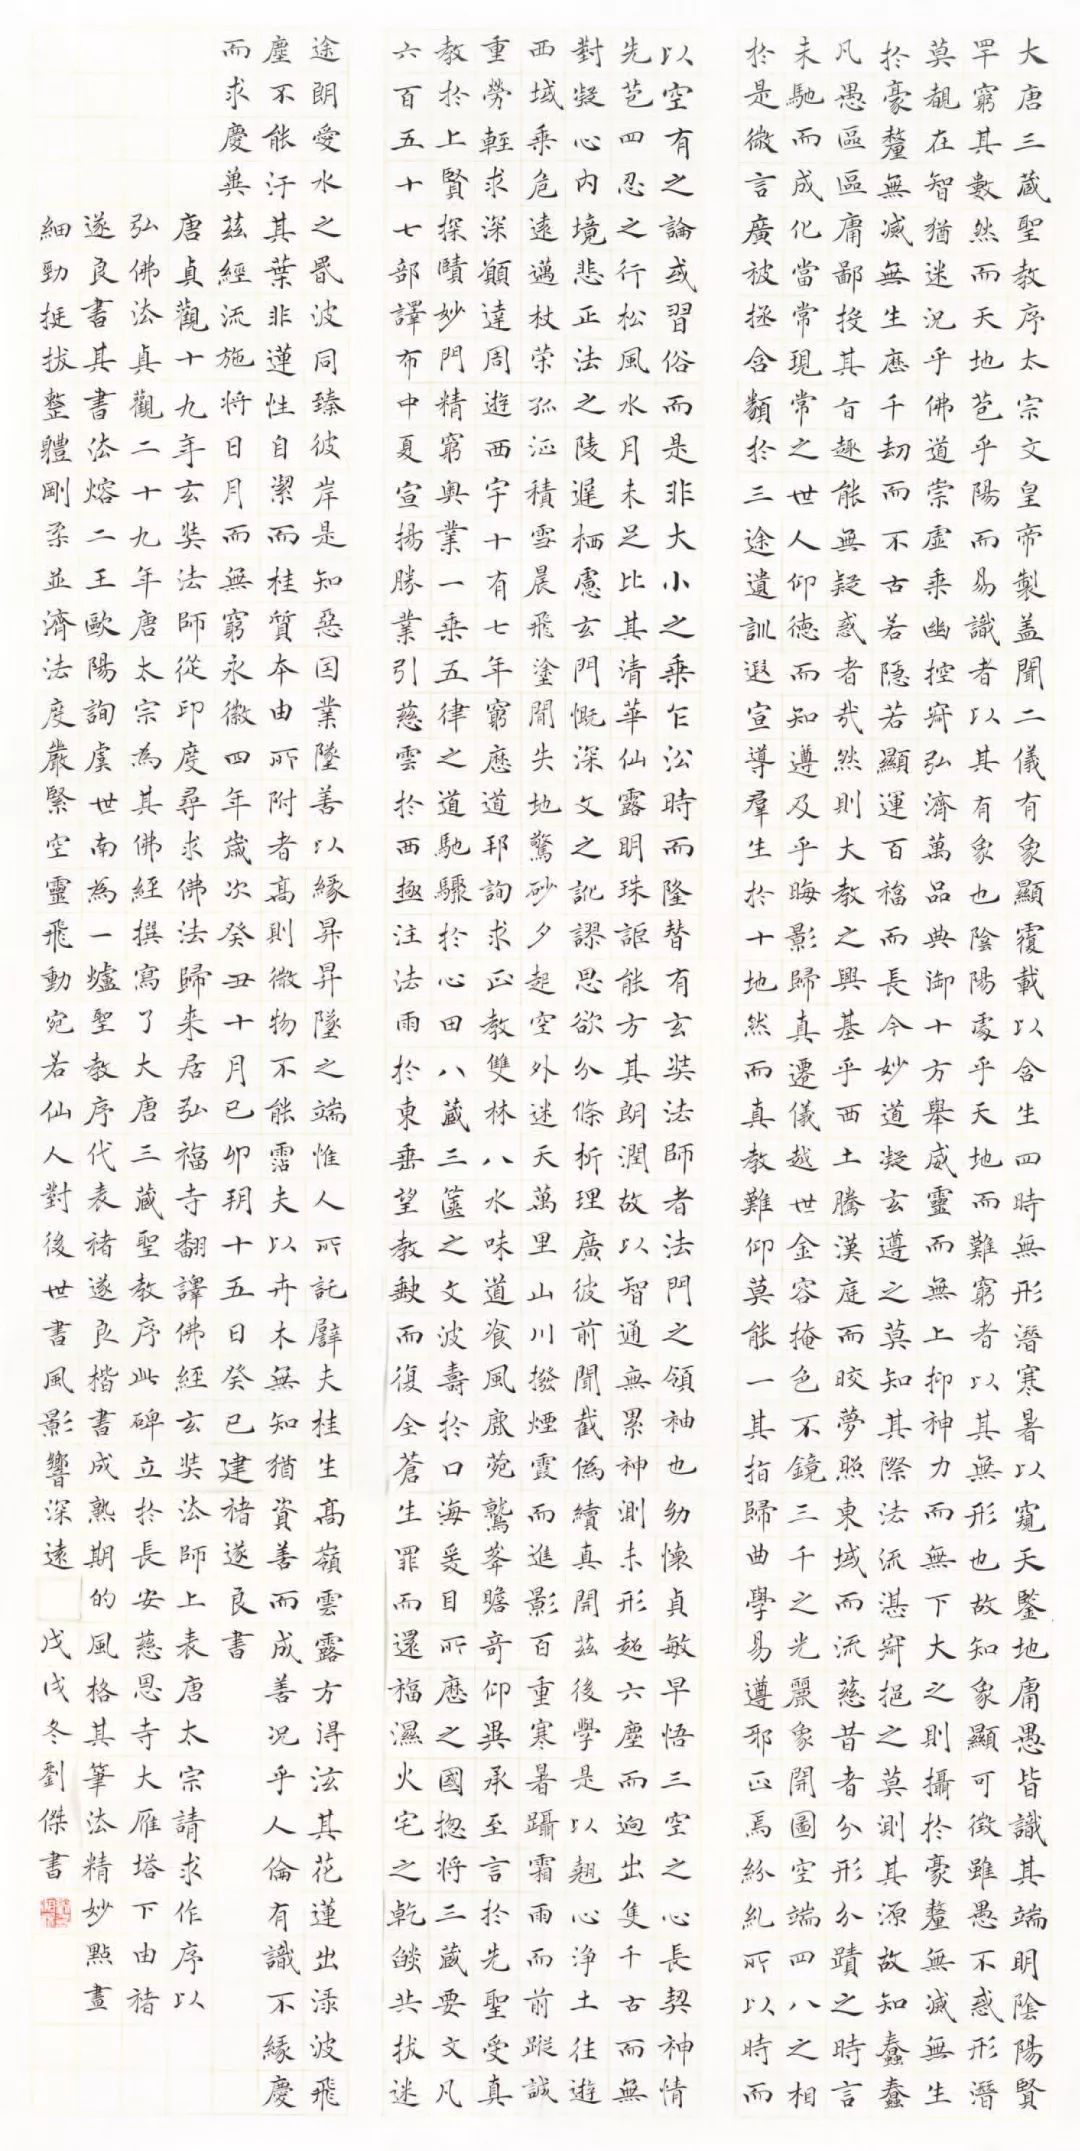 大唐三藏聖教序太宗文皇帝製蓋聞二儀有象顯覆載以含生四時無形潛寒暑以窺天鑒地庸愚皆識其端明陰陽賢
罕窮其數然而天地苞乎陽而易識者以其有象也陰陽處乎天地而難窮者以其無形也故知象顯可徵雖愚不惑形潛
莫覩在智猶迷況乎佛道崇虛乘幽控寂弘濟萬品典御十方舉威靈而無上抑神力而無下大之則攝於豪釐無滅無生
於豪釐無滅無生歷千劫而不古若隱若顯運百福而長今妙道凝玄遵之莫知其際法流湛寂挹之莫測其源故知蠢蠢
凡愚區區庸鄙投其旨趣能無疑惑者哉然則大教之興基乎西土騰漢庭而皎夢照東域而流慈昔者分形分蹟之時言
未馳而成化當常現常之世人仰德而知遵及乎晦影歸真遷儀越世金容掩色不鏡三千之光麗象開圖空端四八之相
於是微言廣被拯含類於三途遺訓遐宣導羣生於十地然而真教難仰莫能一其指歸曲學易遵邪正焉紛糺所以時而
以空有之論或習俗而是非大小之乘乍沿時而隆替有玄奘法師者法門之領袖也幼懷貞敏早悟三空之心長契神情
先苞四忍之行松風水月未足比其清華仙露明珠詎能方其朗潤故以智通無累神測未形超六塵而逈出隻千古而無
對凝心內境悲正法之陵遲栖慮玄門慨深文之訛謬思欲分條析理廣彼前聞截偽續真開茲後學是以翹心淨土往遊
西域乘危遠邁杖策孤征積雪晨飛塗間失地驚砂夕起空外迷天萬里山川撥煙霞而進影百重寒暑躡霜雨而前蹤誠
重勞輕求深願達周遊西宇十有七年窮歷道邦詢求正教雙林八水味道飡風鹿菀鷲峯瞻奇仰異承至言於先聖受真
教於上賢探賾妙門精窮奧業一乘五律之道馳驟於心田八藏三篋之文波壽於口海爰目所歷之國揔將三藏要文凡
六百五十七部譯布中夏宣揚勝業引慈雲於西極注法雨於東垂望教缺而復全蒼生罪而還福濕火宅之乾燄共拔迷
途朗愛水之昬波同臻彼岸是知惡因業墜善以緣昇昇墜之端惟人所託譬夫桂生高嶺雲露方得泫其花蓮出淥波飛
塵不能汙其葉非蓮性自潔而桂質本由所附者高則微物不能霑夫以卉木無知猶資善而成善況乎人倫有識不緣慶
而求慶冀茲經流施將日月而無窮永徽四年歲次癸丑十月己卯朔十五日癸巳建褚遂良書
唐貞觀十九年玄奘法師從印度尋求佛法歸来居弘福寺翻譯佛經玄奘法師上表唐太宗請求作序以
弘佛法貞觀二十九年唐太宗為其佛經撰寫了大唐三藏聖教序此碑立於長安慈恩寺大雁塔下由褚
遂良書其書法熔二王歐陽詢虞世南為一爐聖教序代表褚遂良楷書成熟期的風格其筆法精妙點畫
細勁挺拔整體剛柔並濟法度嚴緊空靈飛動宛若仙人對後世書風影響深遠 戊戌冬劉傑書